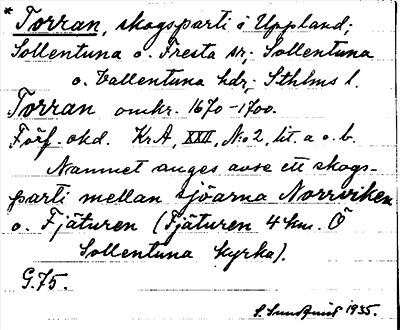 * Torran, skogsparti i Uppland;
Sollentuna o. Fresta sr; Sollentuna
o. Vallentuna hdr; Sthlms l.
Torran omkr. 1670-1700.
Förf. okd. KrA, XXII, N:o 2, lit. a o. b.
Namnet anges avse ett skogs-
parti mellan sjöarna Norrviken
o. Fjäturen (Fjäturen 4 km. Ö
Sollentuna kyrka).
G.75.
S. 1935.